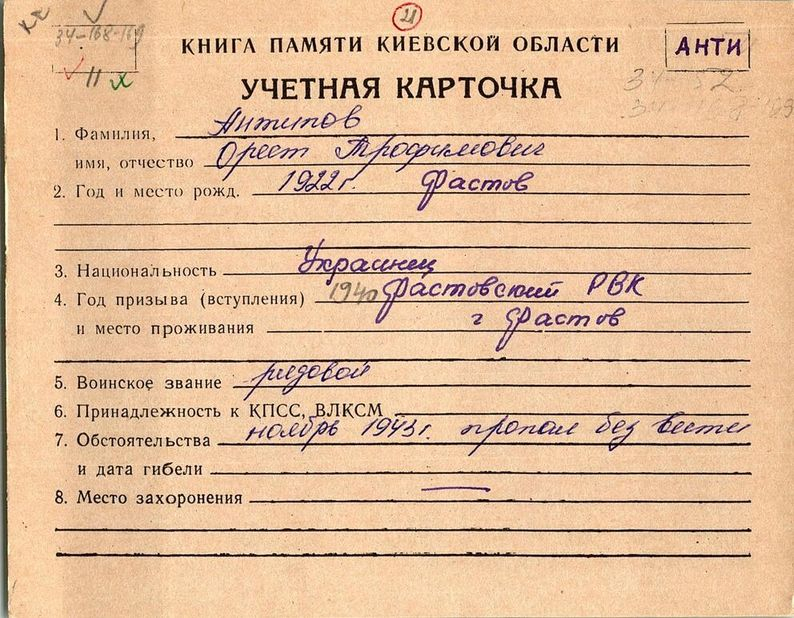 21
34-168-169
11 х
КНИГА ПАМЯТИ КИЕВСКОЙ ОБЛАСТИ
АНТИ
УЧЕТНАЯ КАРТОЧКА
1. Фамилия, Антипов
имя, отчество Орест Трофимович
2. Год и место рожд. 1922г. Фастов
3. Национальность Украинец
4. Год призыва (вступления) 1940 Фастовский РВК
и место проживания г Фастов
5. Воинское звание рядовой
6. Принадлежность к КПСС, ВЛКСМ
7. Обстоятельства ноябрь 1943г. пропал без вести
и дата гибели
8. Место захоронения —